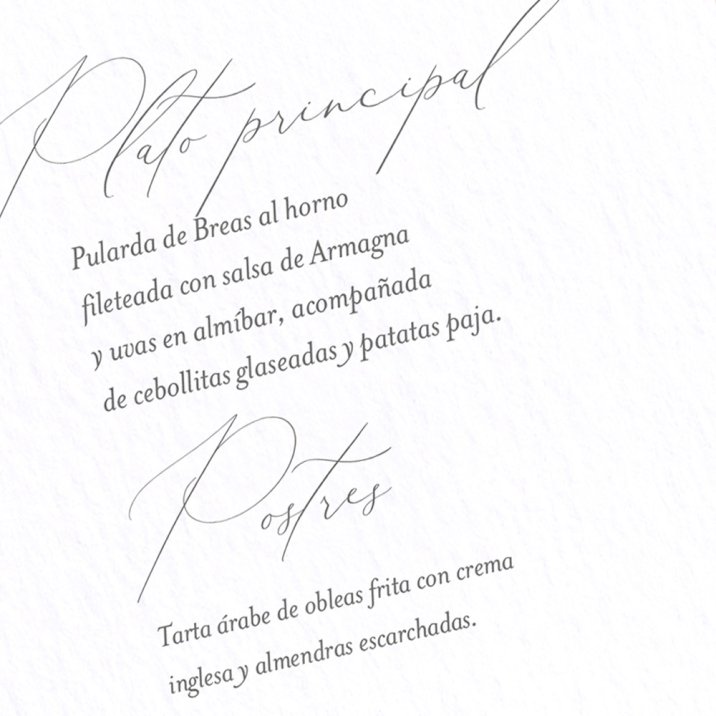 Plato principal
Pularda de Breas al horno
fileteada con salsa de Armagna
y uvas en almíbar, acompañada
de cebollitas glaseadas y patatas paja.
Postres
Tarta árabe de obleas frita con crema
inglesa y almendras escarchadas.